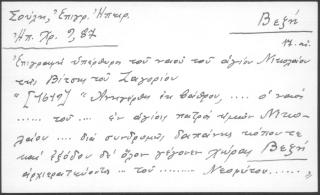 Σούλης, Ἐπιγρ. Ἠπειρ.
Ἠπ. Χρ. 9, 87
Βεξῆ
17. αι.
Ἐπιγραφὴ ὑπέρθυρου τοῦ ναοῦ τοῦ ἁγίου Νικολάου
τῆς Βίτσης τοῦ Ζαγορίου
"[1612] "Ἀνηγέρθη ἐκ βάθρου, .... ὁ ναὸς
...... τοῦ .... ἐν ἁγίοις πατρὸς ἡμῶν Νικο-
λάου .... διὰ συνδρομῆς δαπάνης κόπου τε
καὶ ἐξόδου δὲ ὅλον γέγονεν χώρας Βεξῆ
ἀρχιερατεύοντος ... τοῦ ......... Νεοφύτου......."